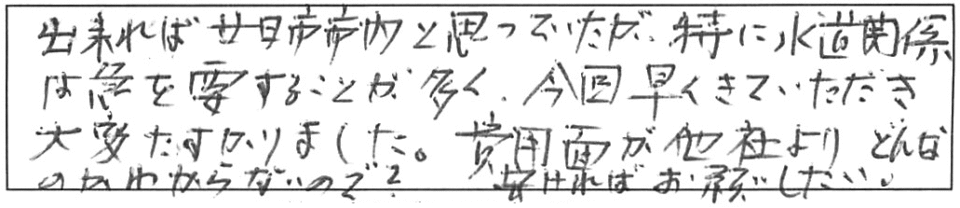 出来れば廿日市市内と思っていたが、特に水道関係
は急を要することが多く、今回早くきていただき
大変たすかりました。費用面が他社よりどんな
のかわからないので? 安ければお願いしたい。